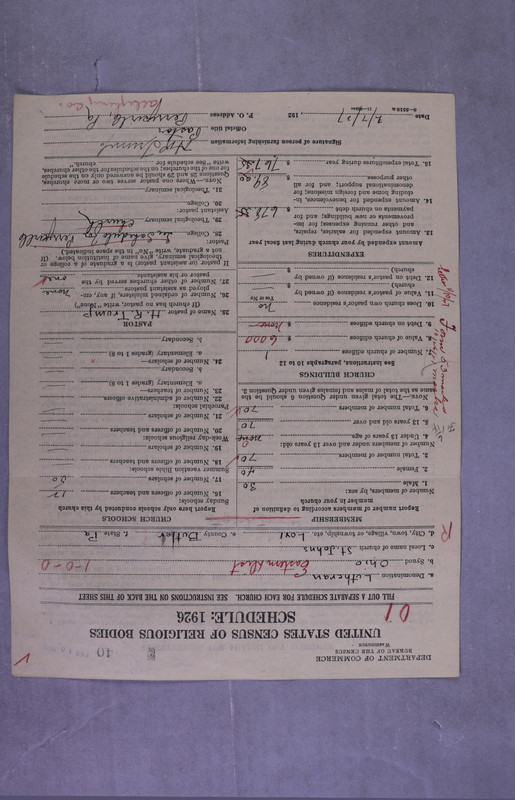 DEPARTMENT OF COMMERCE
BUREAU OF THE CENSUS
WASHINGTON
40
UNITED STATES CENSUS OF RELIGIOUS BODIES
SCHEDULE: 1926
FILL OUT A SEPARATE SCHEDULE FOR EACH CHURCH. SEE INSTRUCTIONS ON THE BACK OF THIS SHEET
a. Denomination Lutheran
b. Synod Ohio Eastern Dist 1-0-0
c. Local name of church St Johns
d. City, town, village, or township, etc. e. County Butler f. State Pa
R
MEMBERSHIP
Report number of members according to definition of member in your church
Number of members, by sex:
1. Male 30
2. Female 40
3. Total number of members 70
Number of members under and over 13 years old:
4. Under 13 years of age none
5. 13 years old and over 70
6. Total number of members 70
NOTE.—The total given under question 6 should be the same as the total of males and females given under Question 3.
CHURCH BUILDINGS
See instructions, paragraphs 10 to 12
7. Number of church edifices 1
8. Value of church edifices $ 6000
9. Debt on church edifices $ none
10. Does church own pastor's residence No
Yes or No
11. Value of pastor's residence (if owned by church) $
12. Debt on pastor's residence (if owned by church) $
EXPENDITURES
Amount expended by your church during last fiscal year
13. Amount expended for salaries, repairs, and other running expenses; for improvements or new buildings; and for payments on church debt $
14. Amount expended for benevolences, including home and foreign missions; for denominational support; and for all other purposes
15. Total expenditures during year $
CHURCH SCHOOLS
Report here only schools conducted by this church
Sunday schools:
16. Number of officers and teachers
17. Number of scholars
Summer vacation Bible schools:
18. Number of officers and teachers
19. Number of scholars
Week-day religious schools:
20. Number of officers and teachers
21. Number of scholars
Parochial schools:
22. Number of administrative officers
23. Number of teachers—
a. Elementary (grades 1 to 8)
b. Secondary
24. Number of scholars—
a. Elementary (grades 1 to 8)
b. Secondary
PASTOR
25. Name of pastor H. R. Trump
(If church has no pastor, write "None")
26. Number of ordained ministers, if any, employed as assistant pastors none
27. Number of other churches served by the pastor or his assistants one
If pastor (or assistant pastor) is a graduate of a college or theological seminary, give name of institution below. (If not a graduate, write "No" in the space indicated.)
Pastor:
28. College See Schedule for Perrysville
29. Theological seminary Church
Assistant pastor:
30. College
31. Theological seminary
NOTE.—Where one pastor serves two or more churches, Questions 25 and 28 should be answered only on the schedule for one of the churches; on the schedule for the other churches, write "See schedule for church."
Signature of person furnishing information
Official title Pastor
P. O. Address
Date 192